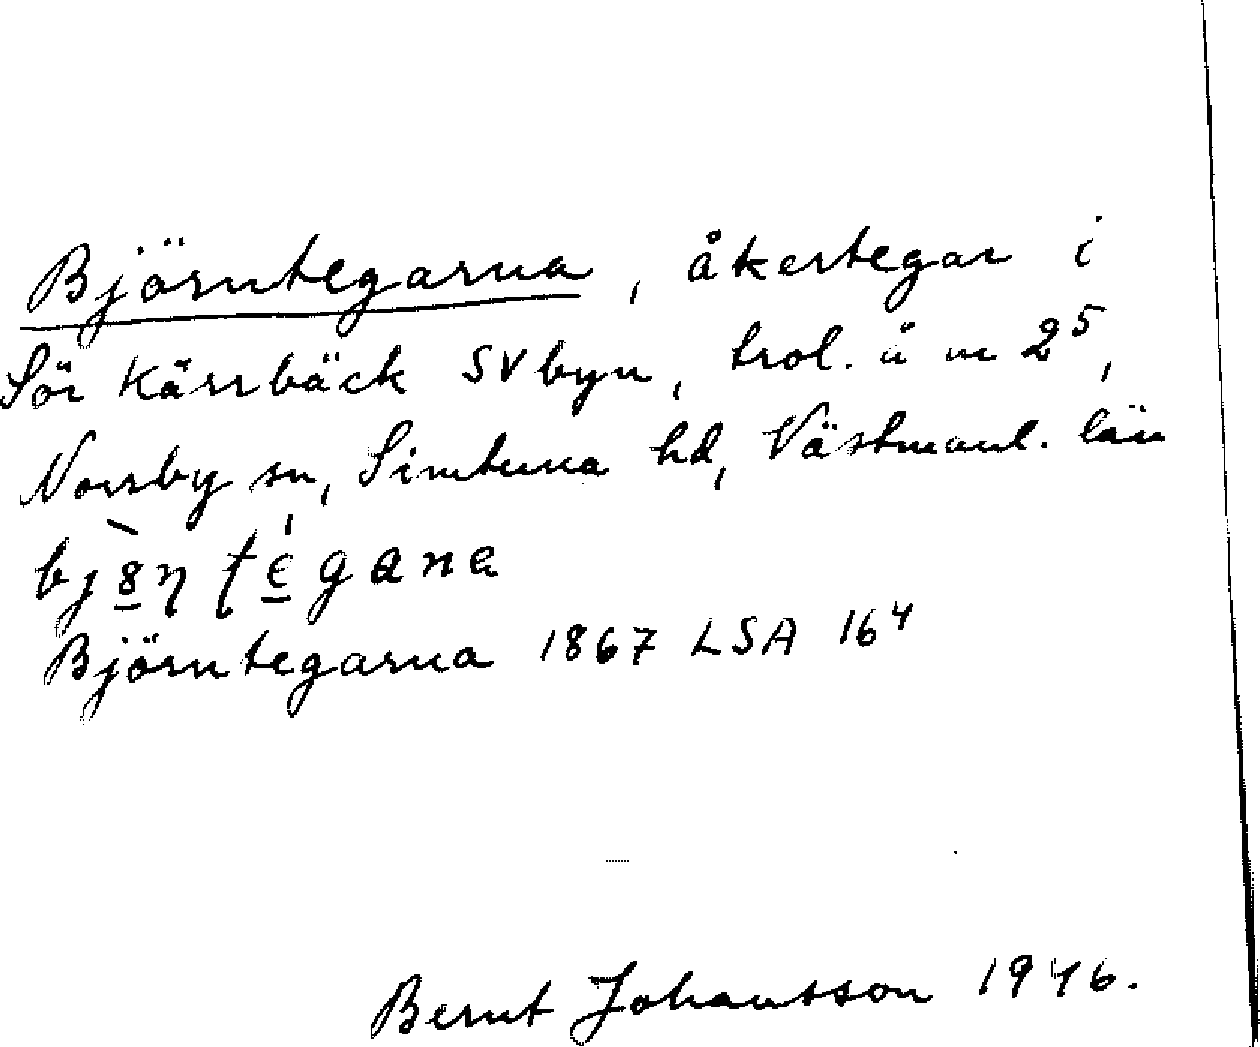 Björntegarna, åkertegar i
Sör Kärrbäck SV byn, trol. å m 2⁵,
Norrby sn, Simtuna hd, Västmanl. län
bjö̱̀n té̱gana
Björntegarna 1867 LSA 16⁴
Bernt Johansson 1946.